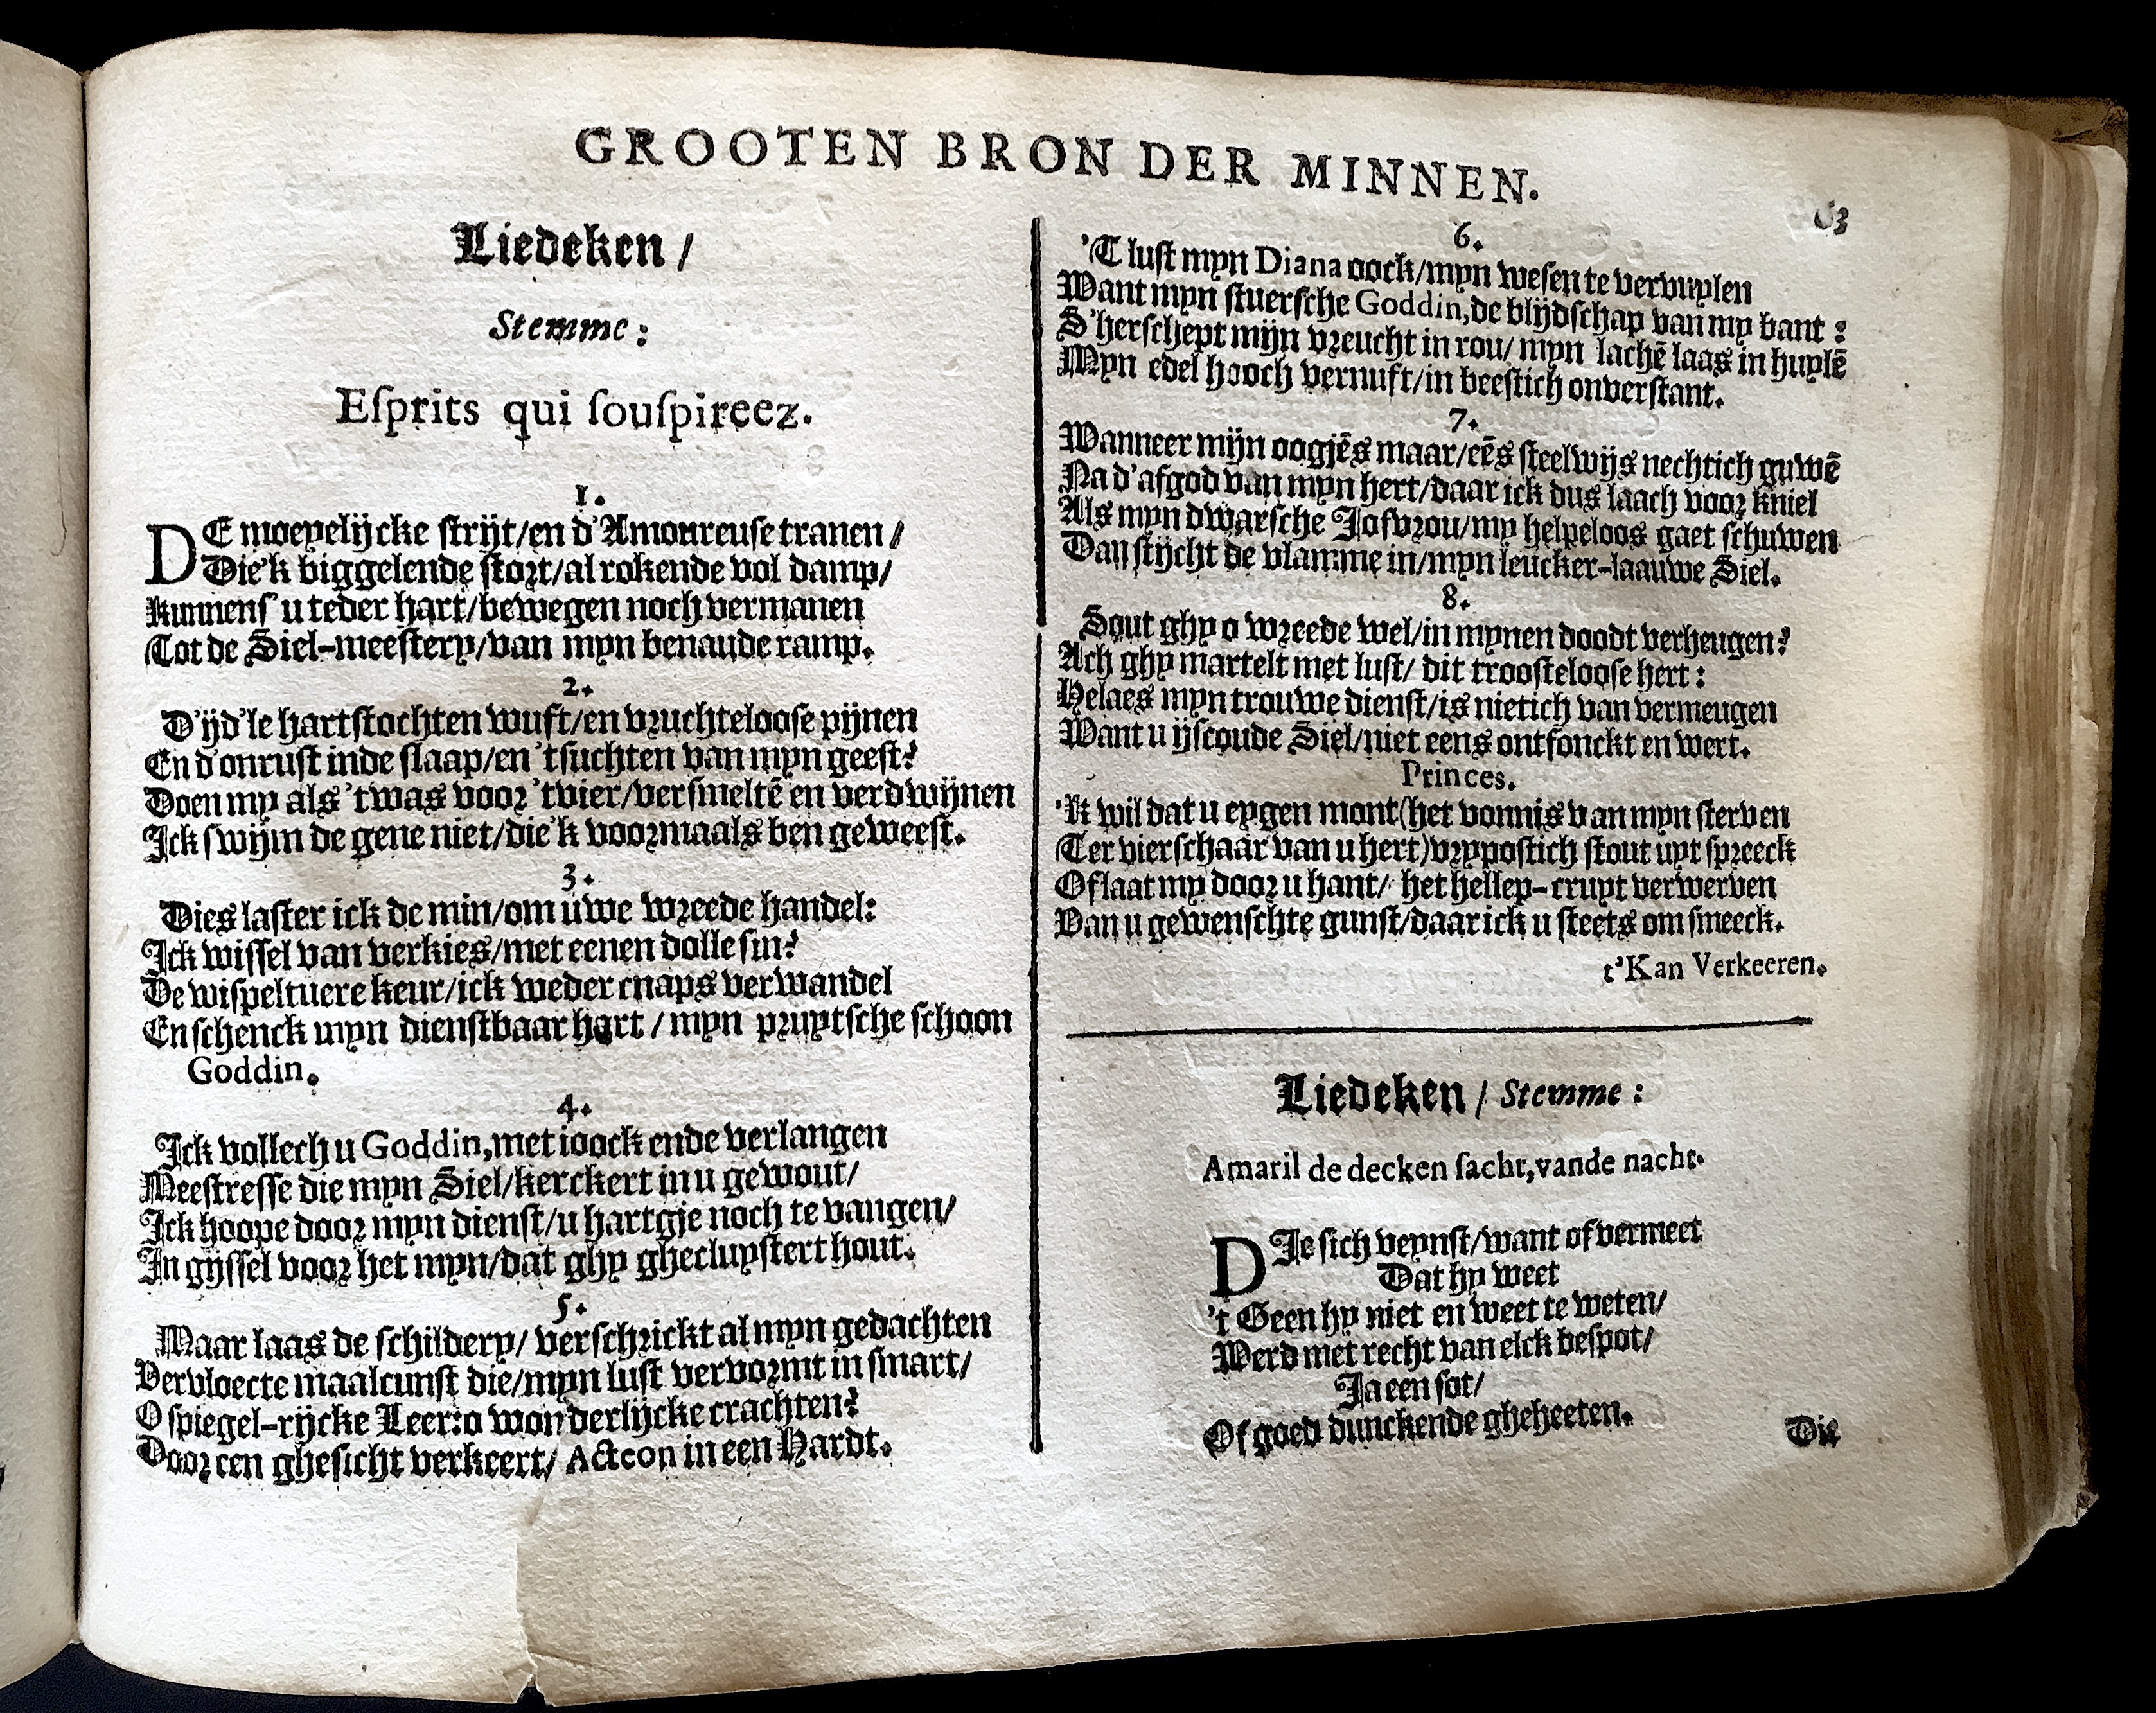 GROOTEN BRON DER MINNEN.
63
Liedeken /
Stemme:
Eſprits qui ſouſpireez.
1.
DE moeyelijcke ſtrijt/en d'Amoureuſe tranen/
Die'k biggelende ſtort/al rokende vol damp/
Kunnenſ' u teder hart/bewegen noch vermanen
Tot de Siel-meeſtery/van myn benaude ramp.
2.
D'ijd'le hartſtochten wuft/en vruchtelooſe pijnen
En d'onruſt inde ſlaap/en 'tſuchten van myn geeſt?
Doen my als 'twas voor 'tvier/verſmeltē en verdwijnen
Ick ſwijm de gene niet/die'k voormaals ben geweeſt.
3.
Dies laſter ick de min/om uwe wreede handel:
Ick wiſſel van verkies/met eenen dolle ſin?
De wiſpeltuere keur/ick weder cnaps verwandel
En ſchenck myn dienſtbaar hart / myn pruytſche ſchoon
Goddin.
4.
Ick vollech u Goddin,met ioock ende verlangen
Meeſtreſſe die myn Siel/kerckert in u gewout/
Ick hoope door myn dienſt/u hartgje noch te vangen/
In gijſſel voor het myn/dat ghy ghecluyſtert hout.
5.
Maar laas de ſchildery/ verſchrickt al myn gedachten
Vervloecte maalcunſt die/myn luſt vervormt in ſmart/
O ſpiegel-rijcke Leer:o wonderlijcke crachten?
Door een gheſicht verkeert/ Acteon in een Hardt.
6.
'T luſt myn Diana oock/myn weſen te vervuylen
Want myn ſtuerſche Goddin,de blijdſchap van my bant:
S'herſchept mijn vreucht in rou/ myn lachē laas in huylē
Myn edel hooch vernuft/in beeſtich onverſtant.
7.
Wanneer mijn oogjēs maar/eēs ſteelwijs nechtich guwē
Na d'afgod van myn hert/daar ick dus laach voor kniel
Als myn dwarſche Jofvrou/my helpeloos gaet ſchuwen
Dan ſtijcht de vlamme in/myn leucker-laauwe Siel.
8.
Sout ghy o wreede wel/in mynen doodt verheugen?
Ach ghy martelt met luſt/ dit trooſtelooſe hert:
Helaes myn trouwe dienſt/is nietich van vermeugen
Want u ijscoude Siel/niet eens ontfonckt en wert.
Princes.
'K wil dat u eygen mont(het vonnis van myn ſterven
Ter vierſchaar van u hert)vrypoſtich ſtout uyt ſpreeck
Of laat my door u hant/ het hellep-cruyt verwerven
Van u gewenſchte gunſt/daar ick u ſteets om ſmeeck.
t'Kan Verkeeren.
Liedeken / Stemme:
Amaril de decken ſacht,vande nacht.
DIe ſich veynſt/want of vermeet
Dat hy weet
't Geen hy niet en weet te weten/
Werd met recht van elck beſpot/
Ja een ſot/
Of goed dunckende gheheeten.
Die